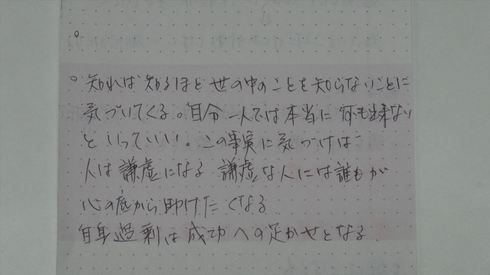 。知れば知るほど世の中のことを知らないことに
気づいてくる。自分一人では本当に何も出来ない
といっていい。この事実に気づけば
人は謙虚になる 謙虚な人には誰もが
心の底から助けたくなる
自身過剰は成功への足かせとなる.